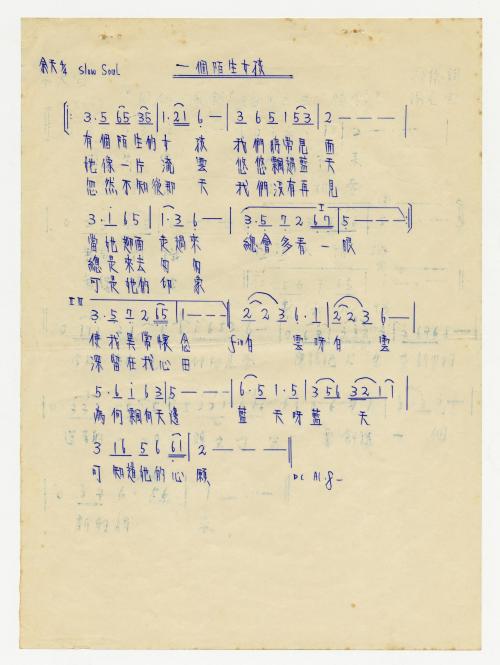 Slow Soul 一個陌生女孩
3·5 65 35 | 1·21 6 — | 3 6 5 1 53 | 2 — — — |
有個陌生的女孩 我們時常見面
她像一片流雲 悠悠飄過藍天
忽然不知從那天 我們沒有再見
3·1 6 5 | 1·3 6 — | 3·5 7 2 67 | 5 — — — |
當她迎面走過來 總會多看一眼
總是來去匆匆
可是她的印象
3·5 7 2 65 | 1 — — — | 2 2 3 6·1 | 2 2 3 6 — |
使我異常懷念 fin 有雲呀有雲
深留在我心田
5·6 1 6 3 | 5 — — — | 6·5 1·5 | 3 56 32 1 1 |
為何飄向天邊 藍天呀藍天
3 16 5 6 61 | 2 — — — ||
可知道她的心願 DC Al.